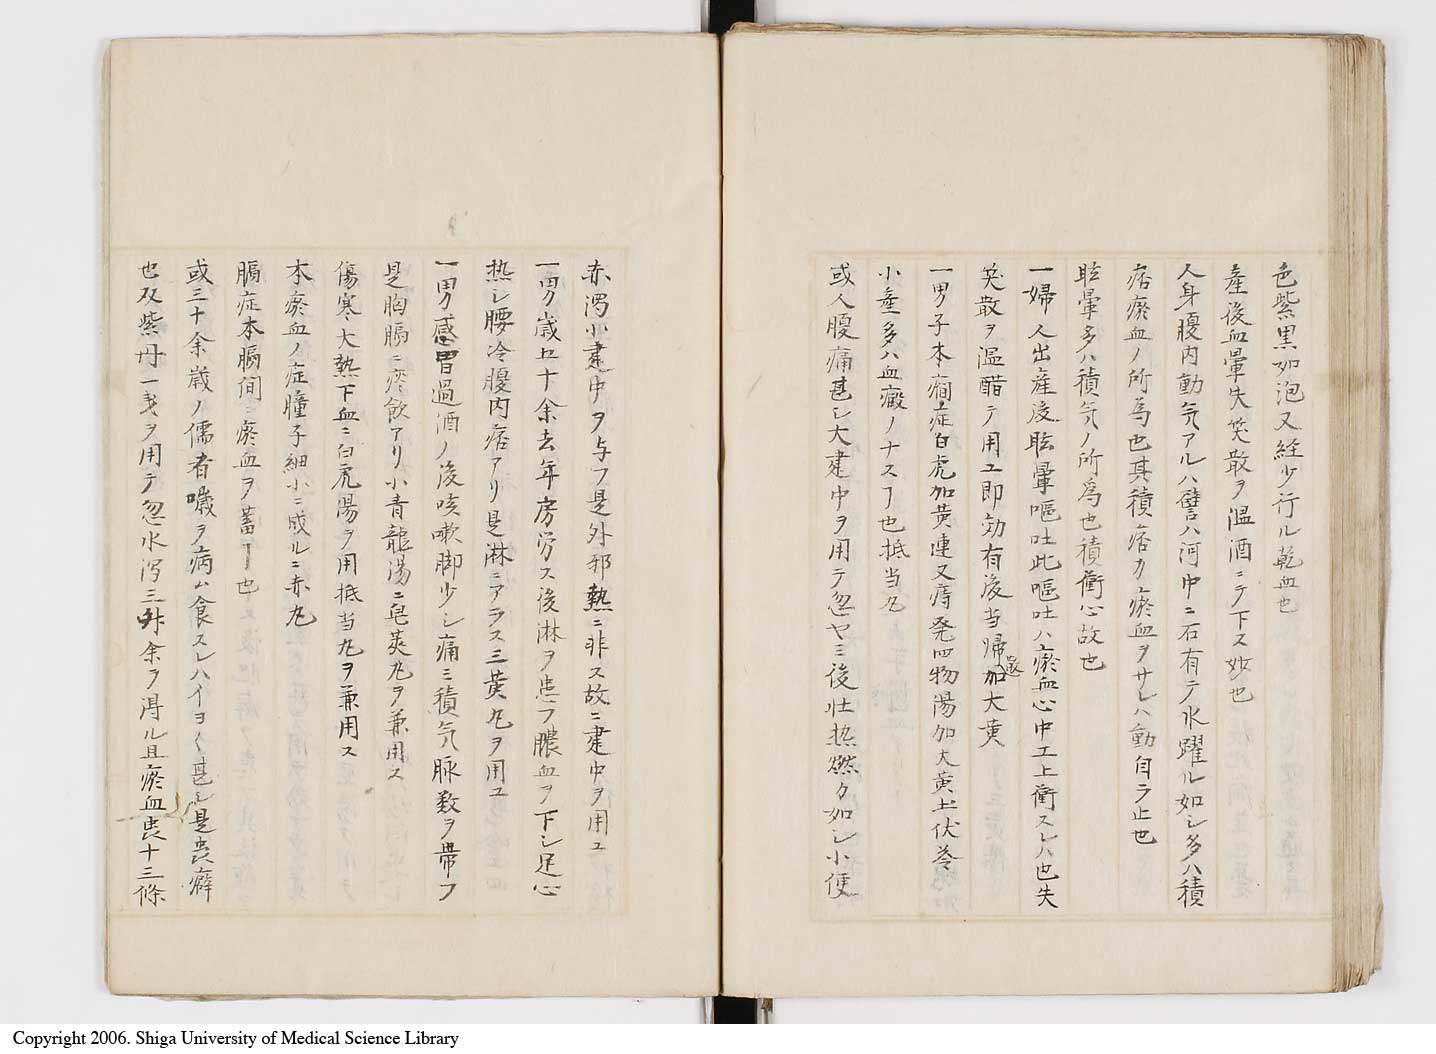 色紫黒如泡又経少行ル乾血也
産後血暈失笑散ヲ温酒ニテ下ス妙也
人身腹内動気アルハ譬ハ河中ニ石有テ水躍ル如シ多ハ積
痞瘀血ノ所為也其積痞カ瘀血ヲサレハ動自ラ止也
眩暈多ハ積気ノ所為也積衝心故也
一婦人出産後眩暈嘔吐此嘔吐ハ瘀血心中エ上衝スレハ也失
笑散ヲ温醋テ用エ即効有後当帰加大黄
一男子本癇症白虎加黄連又痔発四物湯加大黄土伏苓
小産多ハ血癥ノナスヿ也抵当丸
或人腹痛甚シ大建中ヲ用テ忽ヤミ後壮热燃カ如シ小便
赤濁小建中ヲ与フ是外邪熱ニ非ス故ニ建中ヲ用ユ
一男歳五十余去年房労ス後淋ヲ患フ膿血ヲ下シ足心
热シ腰冷腹内痞アリ是淋ニアラス三黄丸ヲ用ユ
一男感冒過酒ノ後咳嗽脚少シ痛ミ積気脉数ヲ帶フ
是胸膈ニ痰飲アリ小青龍湯ニ皂莢丸ヲ兼用ス
傷寒大熱下血ニ白虎湯ヲ用抵当丸ヲ兼用ス
本瘀血ノ症瞳子細小ニ成ルニ赤丸
膈症本膈間ニ瘀血ヲ蓄ヿ也
或三十余歳ノ儒者噦ヲ病ム食スレハイヨく甚シ是喪癖
也及紫丹一戔ヲ用テ忽水瀉三升余ヲ得ル且瘀血喪十三條